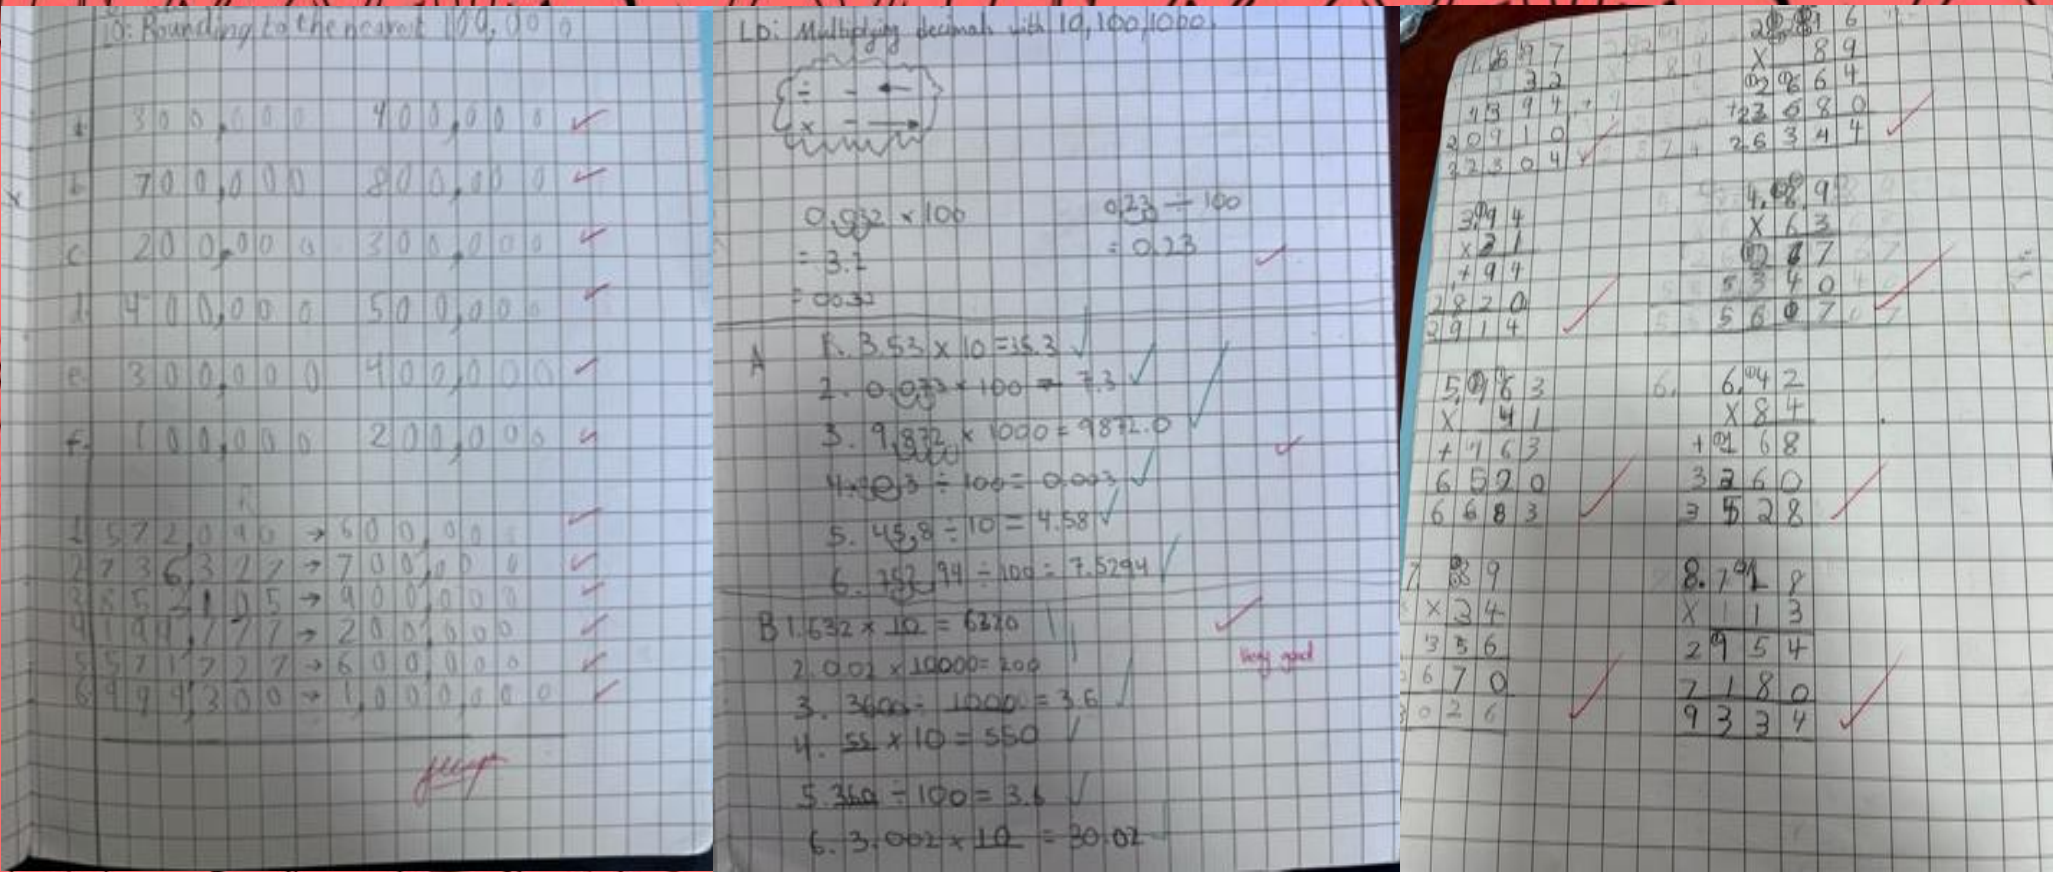 LO: Rounding to the nearest 100,000
a. 300,000 400,000
b. 700,000 800,000
c. 200,000 300,000
d. 400,000 500,000
e. 300,000 400,000
f. 100,000 200,000
1 572,090 → 600,000
2 736,322 → 700,000
3 852,105 → 900,000
4 194,777 → 200,000
5 571,727 → 600,000
6 999,300 → 1,000,000
LO: Multiplying decimals with 10, 100, 1000.
÷ - ←
x - →
0.032 x 100
= 3.2
0.23 ÷ 100
= 0.23
A 1. 3.53 x 10 = 35.3
2. 0.073 x 100 = 7.3
3. 9.872 x 1000 = 9872.0
4. 0.3 ÷ 100 = 0.003
5. 45.8 ÷ 10 = 4.58
6. 752.94 ÷ 100 = 7.5294
B 1. 632 x 10 = 6320
2. 0.02 x 10000 = 200
3. 3600 ÷ 1000 = 3.6
4. 55 x 10 = 550
5. 360 ÷ 100 = 3.6
6. 3.002 x 10 = 30.02
Very good
1. 697
32
1394
20910
22304
296
x 89
2664
+23680
26344
3. 94
x 31
+94
2820
2914
4. 89
x 63
267
5340
5607
5. 163
x 41
+163
6520
6683
6. 42
x 84
+168
3360
3528
7 89
x 34
356
2670
3026
8. 718
x 113
2954
7180
9334